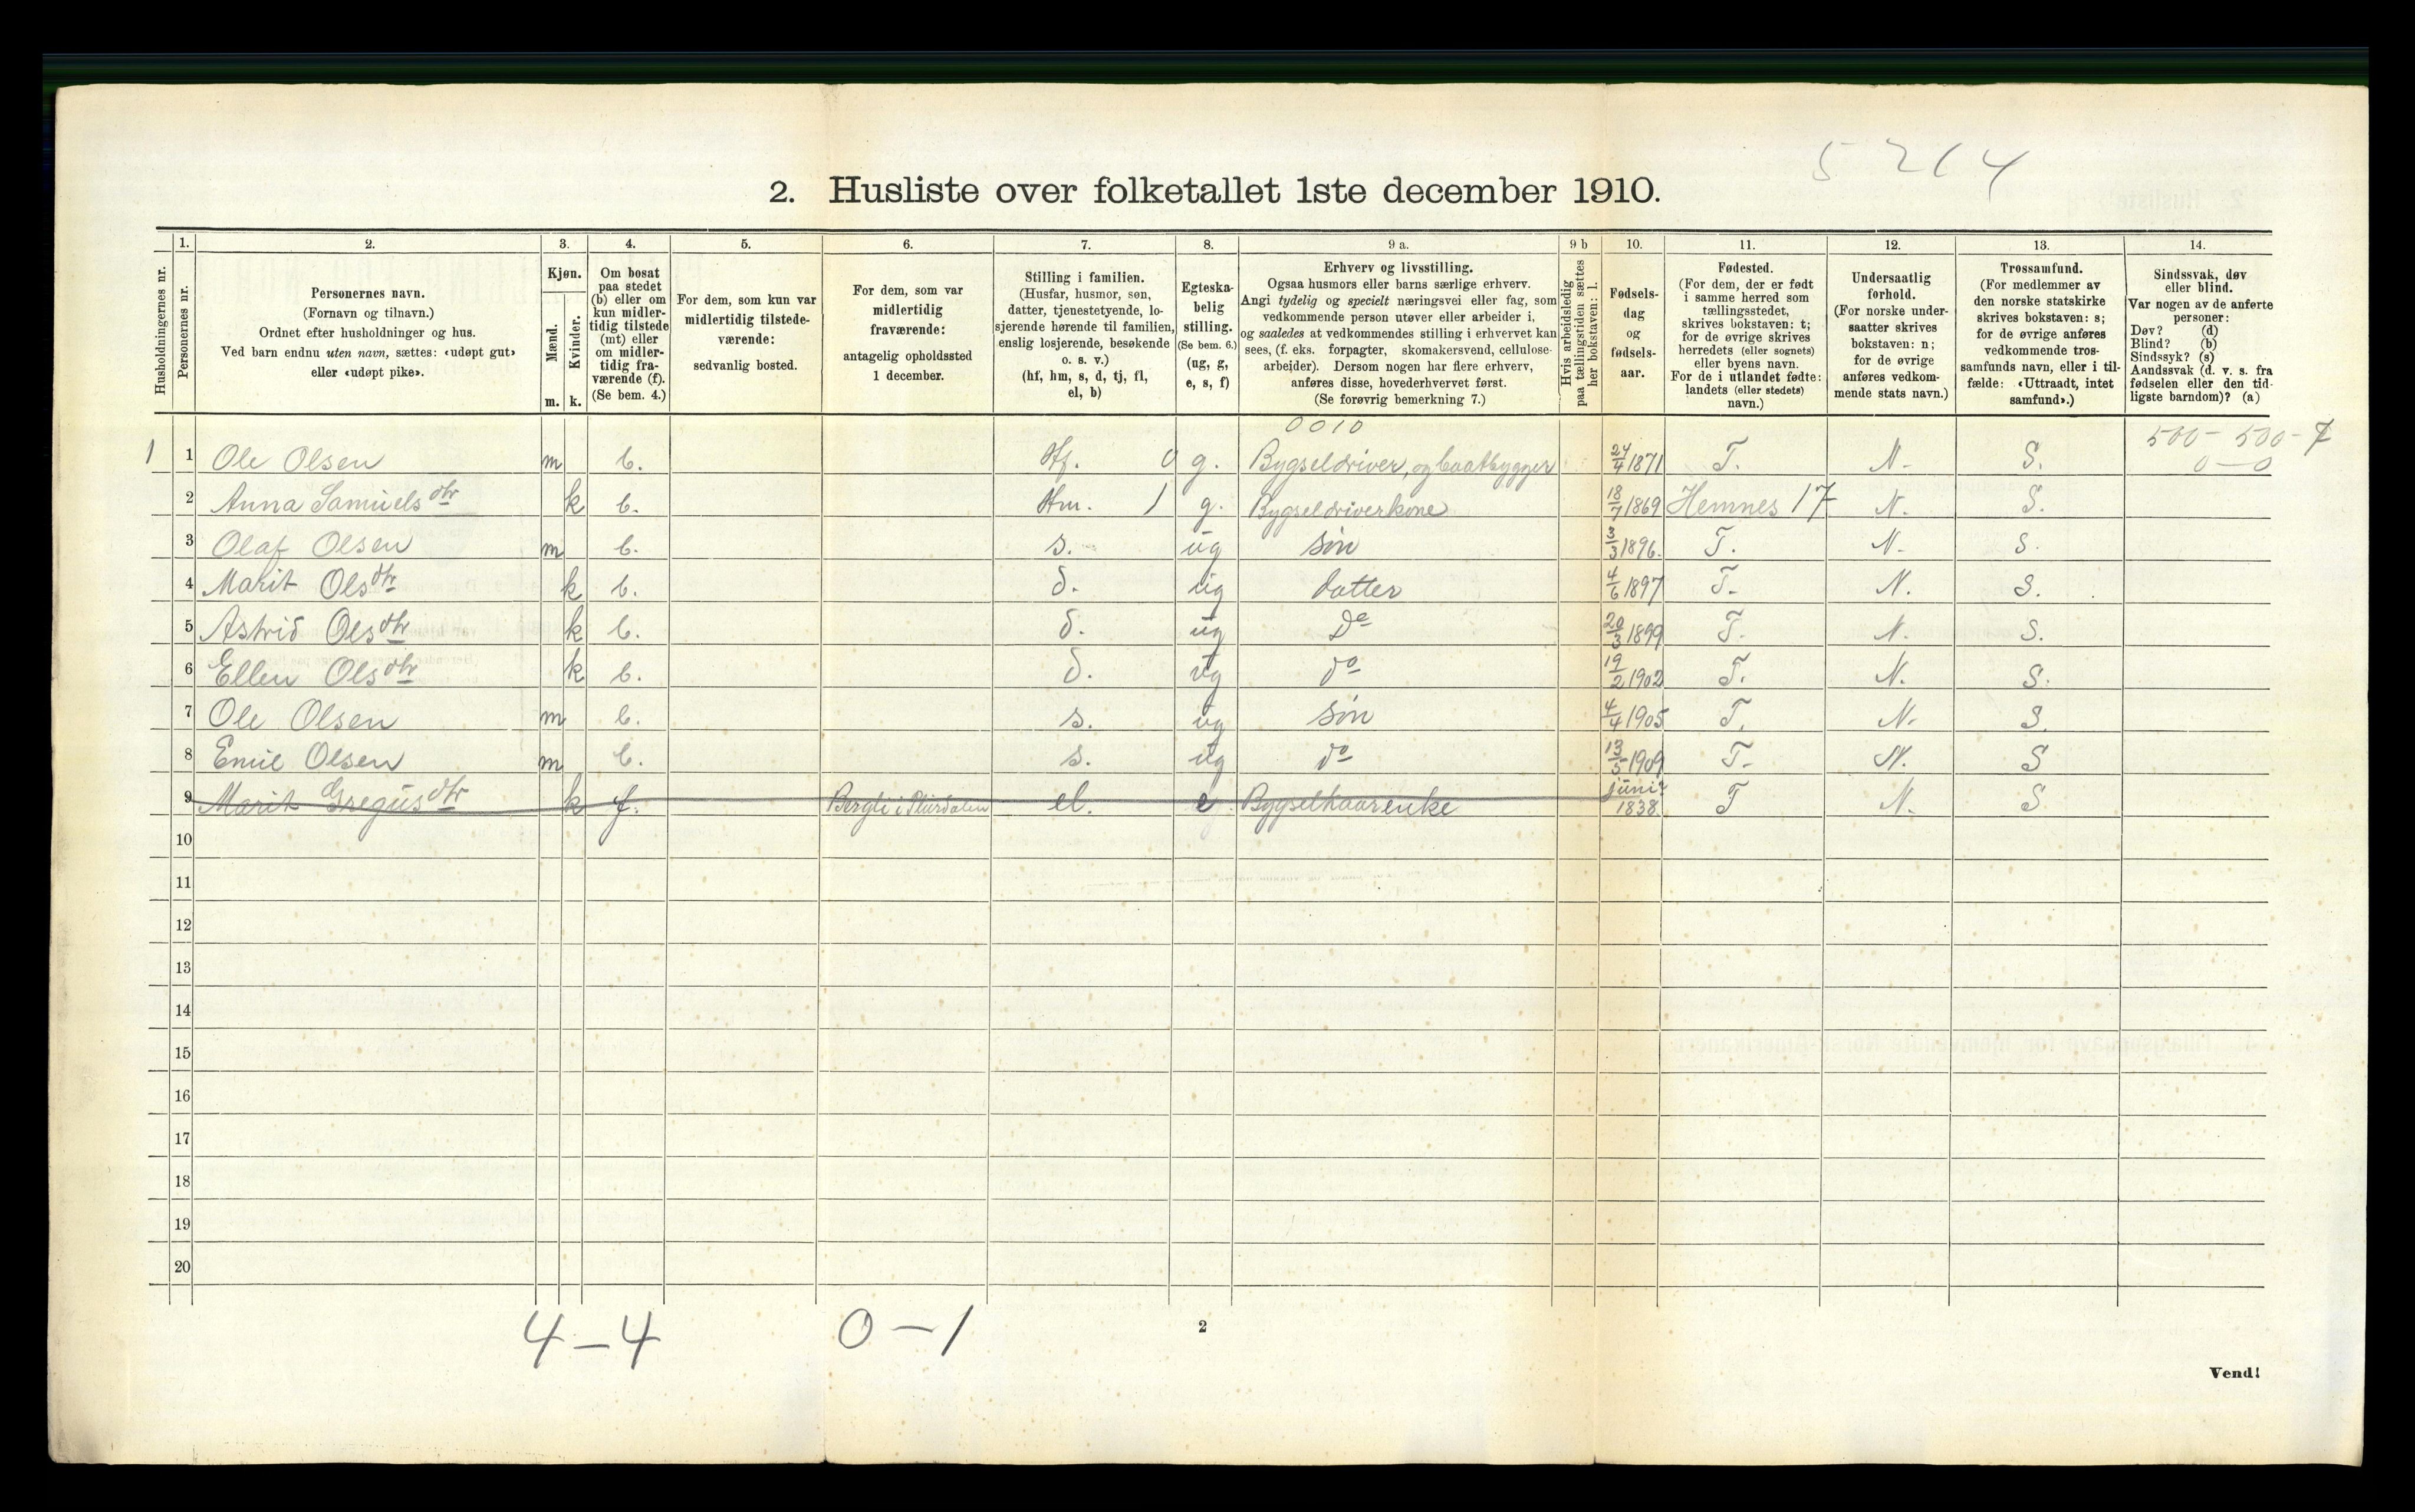 5 214
2. Husliste over folketallet 1ste december 1910.
1. 2. 3. 4. 5. 6. 7. 8. 9 a. 9 b 10. 11. 12. 13. 14.
Husholdningernes nr.
Personernes nr.
Personernes navn.
(Fornavn og tilnavn.)
Ordnet efter husholdninger og hus.
Ved barn endnu uten navn, sættes: «udøpt gut»
eller «udøpt pike».
Kjøn.
Mænd.
Kvinder.
m. k.
Om bosat
paa stedet
(b) eller om
kun midler-
tidig tilstede
(mt) eller
om midler-
tidig fra-
værende (f).
(Se bem. 4.)
For dem, som kun var
midlertidig tilstede-
værende:
sedvanlig bosted.
For dem, som var
midlertidig
fraværende:
antagelig opholdssted
1 december.
Stilling i familien.
(Husfar, husmor, søn,
datter, tjenestetyende, lo-
sjerende hørende til familien,
enslig losjerende, besøkende
o. s. v.)
(hf, hm, s, d, tj, fl,
el, b)
Egteska-
belig
stilling.
(Se bem. 6.)
(ug, g,
e, s, f)
Erhverv og livsstilling.
Ogsaa husmors eller barns særlige erhverv.
Angi tydelig og specielt næringsvei eller fag, som
vedkommende person utøver eller arbeider i,
og saaledes at vedkommendes stilling i erhvervet kan
sees, (f. eks. forpagter, skomakersvend, cellulose-
arbeider). Dersom nogen har flere erhverv,
anføres disse, hovederhvervet først.
(Se forøvrig bemerkning 7.)
Hvis arbeidsledig
paa tællingstiden sættes
her bokstaven: l.
Fødsels-
dag
og
fødsels-
aar.
Fødested.
(For dem, der er født
i samme herred som
tællingsstedet,
skrives bokstaven: t;
for de øvrige skrives
herredets (eller sognets)
eller byens navn.
For de i utlandet fødte:
landets (eller stedets)
navn.)
Undersaatlig
forhold.
(For norske under-
saatter skrives
bokstaven: n;
for de øvrige
anføres vedkom-
mende stats navn.)
Trossamfund.
(For medlemmer av
den norske statskirke
skrives bokstaven: s;
for de øvrige anføres
vedkommende tros-
samfunds navn, eller i til-
fælde: «Uttraadt, intet
samfund».)
Sindssvak, døv
eller blind.
Var nogen av de anførte
personer:
Døv? (d)
Blind? (b)
Sindssyk? (s)
Aandssvak (d. v. s. fra
fødselen eller den tid-
ligste barndom)? (a)
0010 500 - 500 - 7
1 1 Ole Olsen m b. Hf. 0 g. Bygseldriver, og baatbygger 24/4 1871 T. N. S. 0-0
2 Anna Samuelsdtr k b. Hm. 1 g. Bygseldriverkone 18/7 1869 Hemnes 17 N. S.
3 Olaf Olsen m b. s. ug søn 3/3 1896. T. N. S.
4 Marit Olsdtr k b. d. ug datter 4/6 1897 T. N. S.
5 Astrid Olsdtr k b. d. ug Do 20/3 1899 T. N. S.
6 Ellen Olsdtr k b. d. ug do 19/2 1902 T. N. S.
7 Ole Olsen m b. s. ug søn 4/4 1905 T. N. S.
8 Emil Olsen m b. s. ug do 13/5 1909 T. N. S
9 Marit Gregusdtr k f. i el. e Bygselkaarenke juni 1838. T N. S
10
11
12
13
14
15
16
17
18
19
20
4-4 0-1
2
Vend!